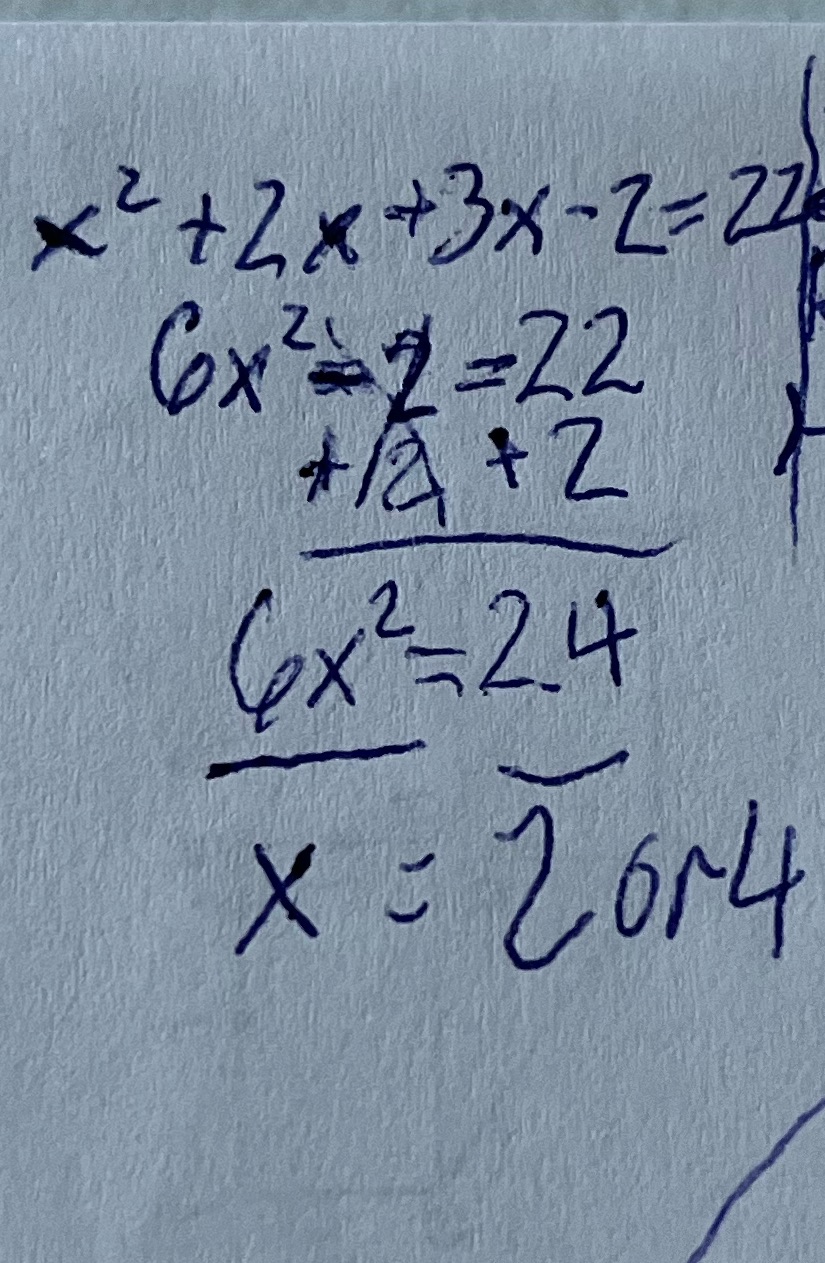 x² + 2x + 3x - 2 = 22
6x² - 2 = 22
+ 2 + 2
6x² = 24
x = 2 or 4